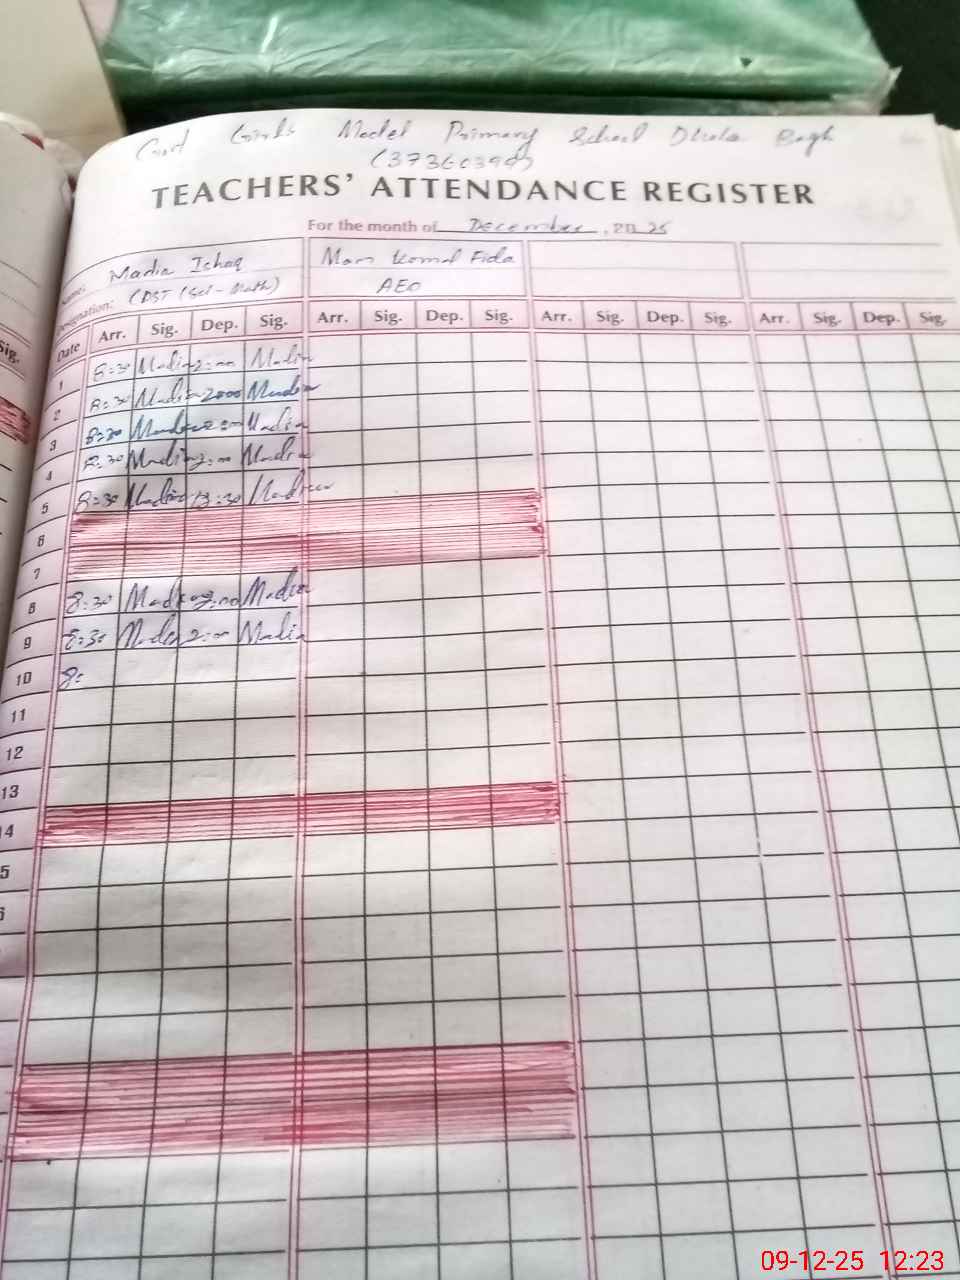 Govt Girls Model Primary School Dhola Bagh
TEACHERS' ATTENDANCE REGISTER
For the month of December, 2025
Name: Madia Ishaq
Mam Komal Fida
Designation: (Sci-Math)
AEO
Date Arr. Sig. Dep. Sig. Arr. Sig. Dep. Sig. Arr. Sig. Dep. Sig. Arr. Sig. Dep. Sig.
1 8:30 Madia 2:00 Madia
2 8:30 Madia 2:00 Madia
3 8:30 Madia 2:00 Madia
4 8:30 Madia 2:00 Madia
5 8:30 Madia 12:30 Madia
6
7
8 8:30 Madia 2:00 Madia
9 8:30 Madia 2:00 Madia
10 8:
11
12
13
14
5
6
Sig.
09-12-25 12:23